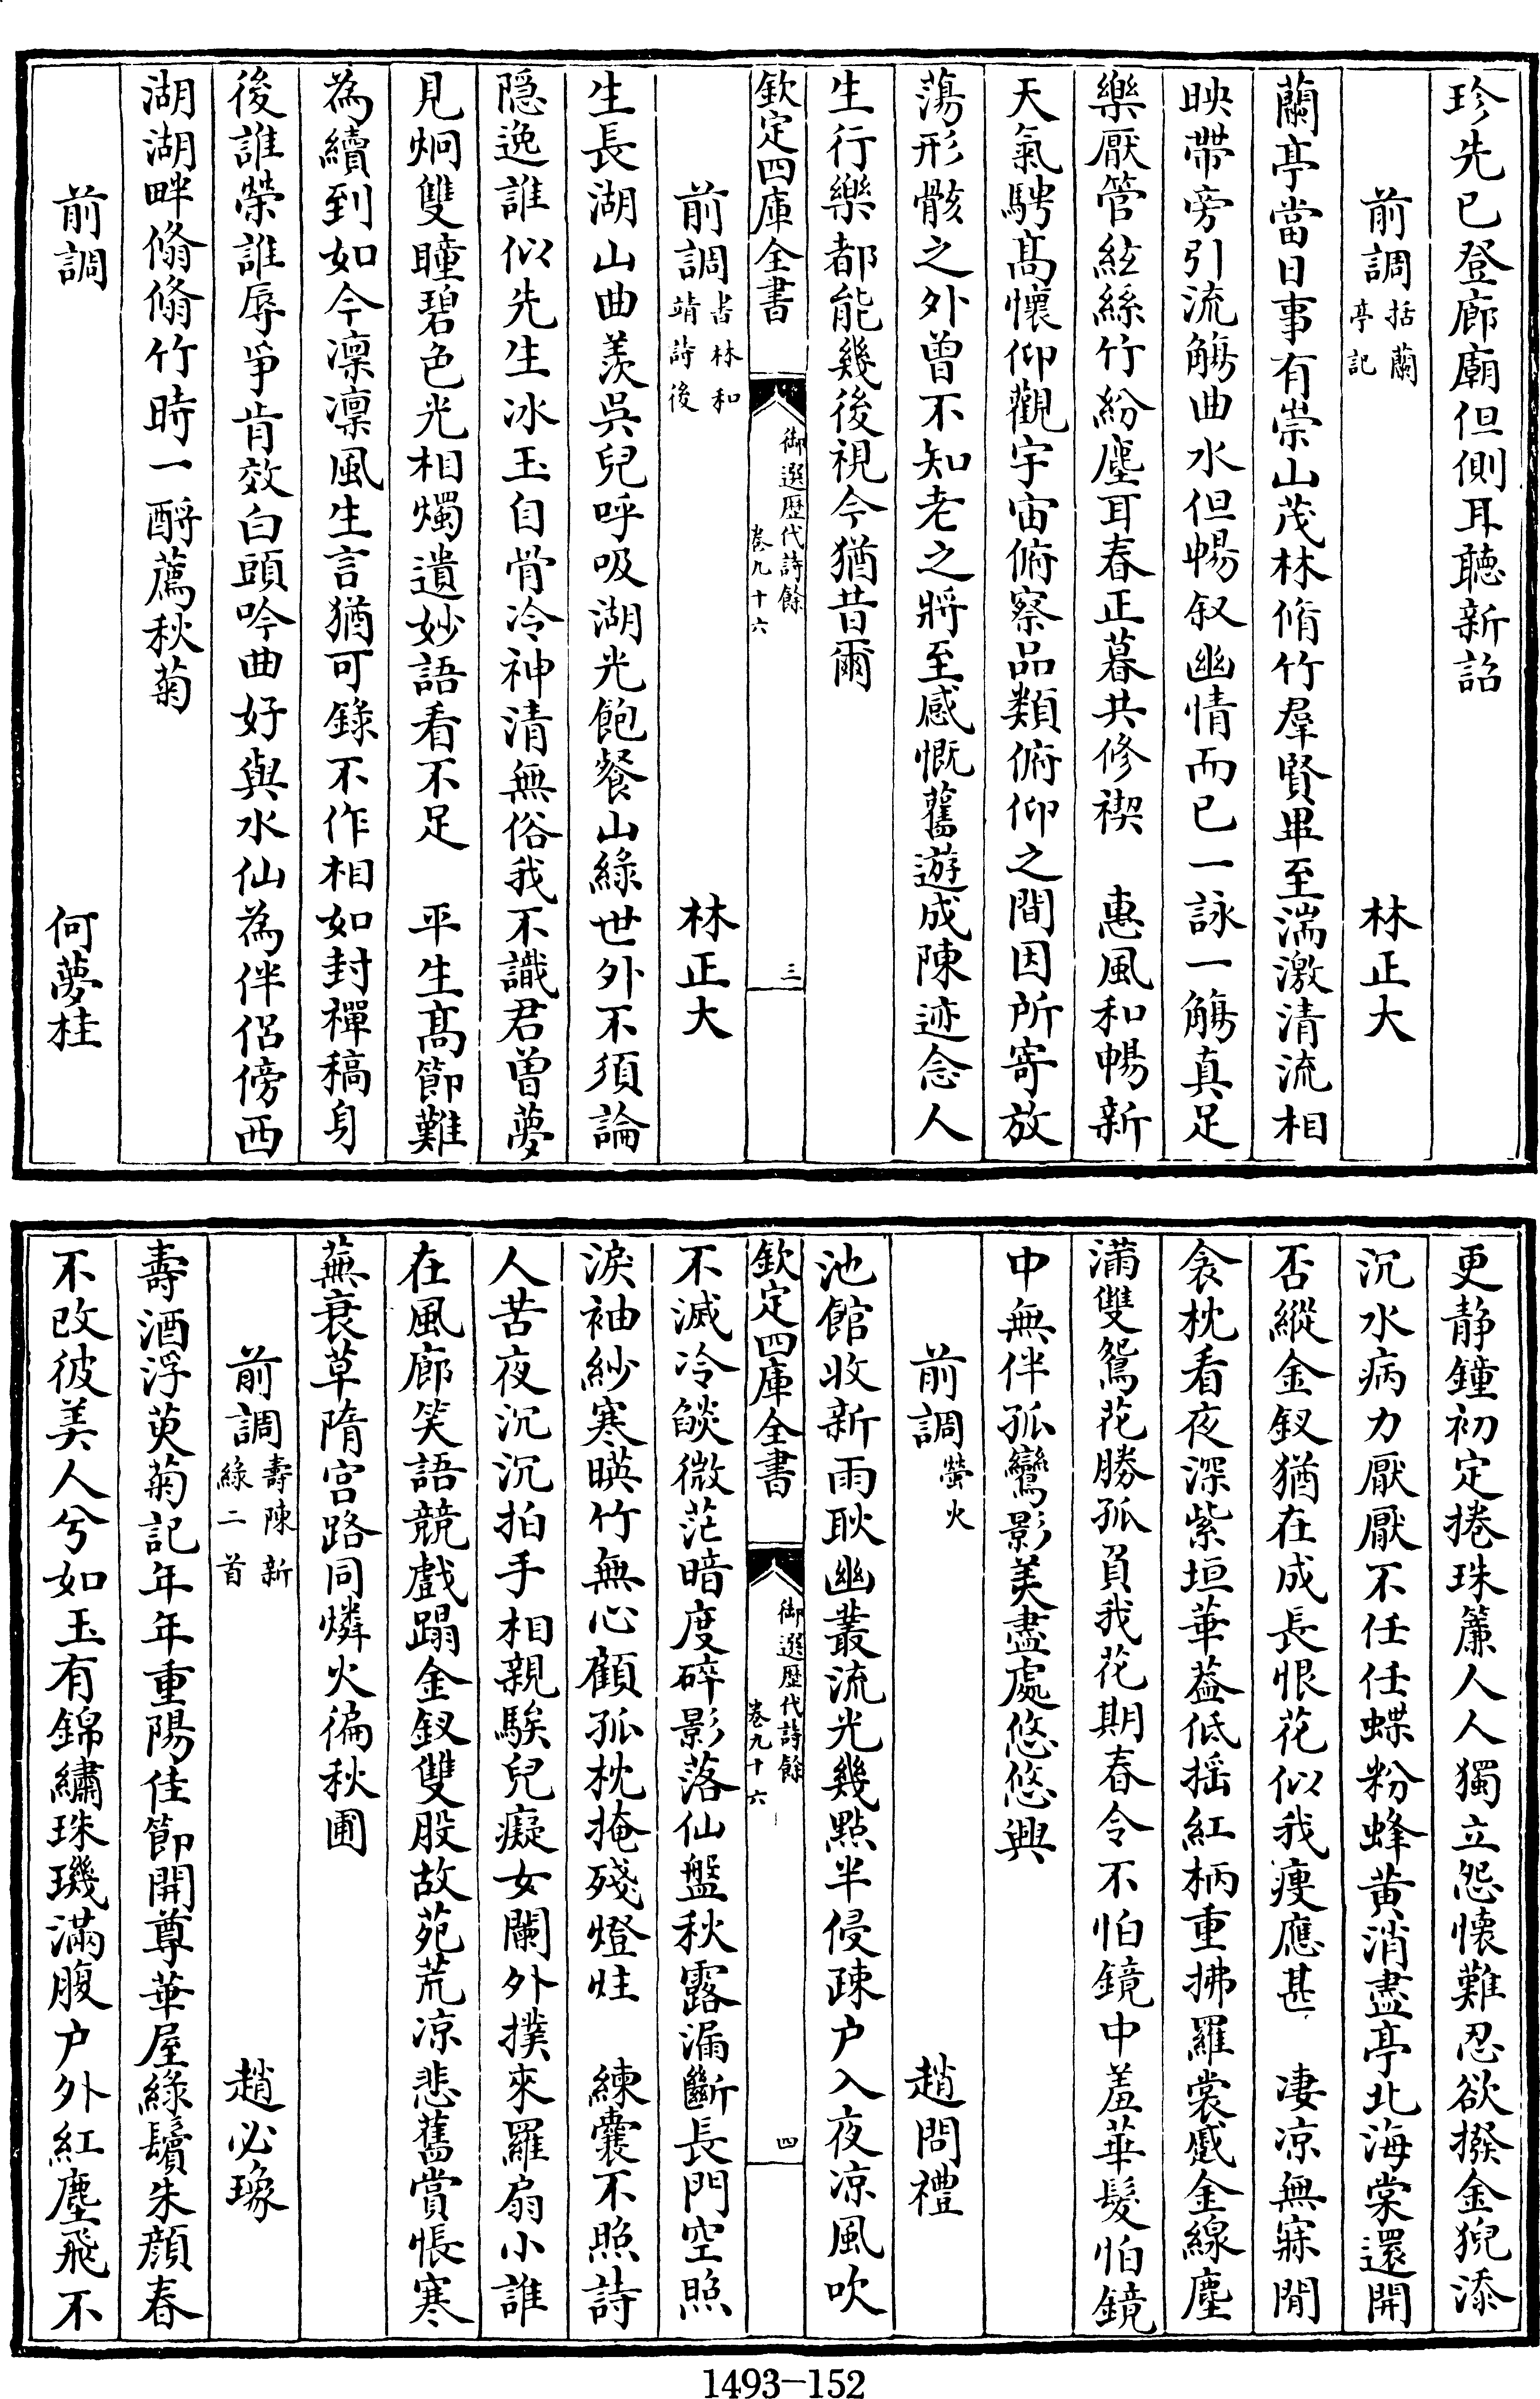 珍先已登廊廟但側耳聽新詔
前調括蘭亭記　林正大
蘭亭當日事有崇山茂林脩竹羣賢畢至湍激清流相
映帶旁引流觴曲水但暢叙幽情而已一詠一觴真足
樂厭管絃絲竹紛塵耳春正暮共修禊　惠風和暢新
天氣騁髙懷仰觀宇宙俯察品類俯仰之間因所寄放
蕩形骸之外曾不知老之將至感慨舊遊成陳迹念人
生行樂都能幾後視今猶昔爾
欽定四庫全書　御選歴代詩餘卷九十六　三
前調書林和靖詩後　林正大
生長湖山曲羡呉兒呼吸湖光飽餐山綠世外不須論
隠逸誰似先生冰玉自骨冷神清無俗我不識君曽夢
見炯雙瞳碧色光相燭遺妙語看不足　平生髙節難
為續到如今凛凛風生言猶可錄不作相如封禪稿身
後誰榮誰辱爭肯效白頭吟曲好與水仙為伴侣傍西
湖湖畔翛翛竹時一酹薦秋菊
前調　何夢桂
更静鐘初定捲珠簾人人獨立怨懐難忍欲撥金猊添
沉水病力厭厭不任任蝶粉蜂黄消盡亭北海棠還開
否縱金釵猶在成長恨花似我瘦應甚　凄凉無寐閒
衾枕看夜深紫垣華葢低揺紅柄重拂羅裳蹙金線塵
滿雙鴛花勝孤負我花期春令不怕鏡中羞華髮怕鏡
中無伴孤鸞影美盡處悠悠興
前調螢火　趙問禮
池館收新雨耿幽叢流光幾點半侵疎户入夜凉風吹
欽定四庫全書　御選歴代詩餘卷九十六　四
不滅冷餤微茫暗度碎影落仙盤秋露漏斷長門空照
淚袖紗寒暎竹無心顧孤枕掩殘燈炷　練囊不照詩
人苦夜沉沉拍手相親騃兒癡女闌外撲來羅扇小誰
在風廊笑語競戲蹋金釵雙股故苑荒凉悲舊賞悵寒
蕪衰草隋宫路同燐火徧秋圃
前調壽陳新綠二首　趙必瑑
壽酒浮萸菊記年年重陽佳節開尊華屋綠鬢朱顔春
不改彼美人兮如玉有錦繡珠璣滿腹户外紅塵飛不
1493-152